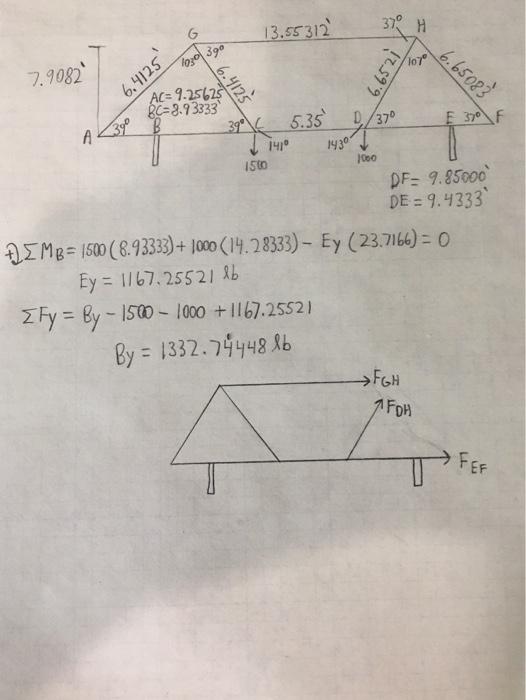 G 13.55312' 37° H
39°
103°
7.9082'
6.4125'
6.4125'
6.6521'
107°
6.65083'
AC= 9.25625
BC= 8.93333'
A 39° B 39° C 5.35' D 37° E 37° F
141° 143°
1500 1000
DF= 9.85000'
DE = 9.4333'
+ΣMB= 1500(8.93333)+ 1000(14.28333) - Ey (23.7166) = 0
Ey = 1167.25521 lb
ΣFy = By - 1500 - 1000 + 1167.25521
By = 1332.74448 lb
FGH
FDH
FEF